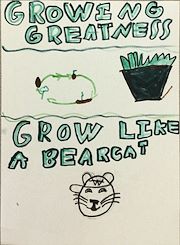 GROWING
GREATNESS
GROW LIKE
A BEARCAT